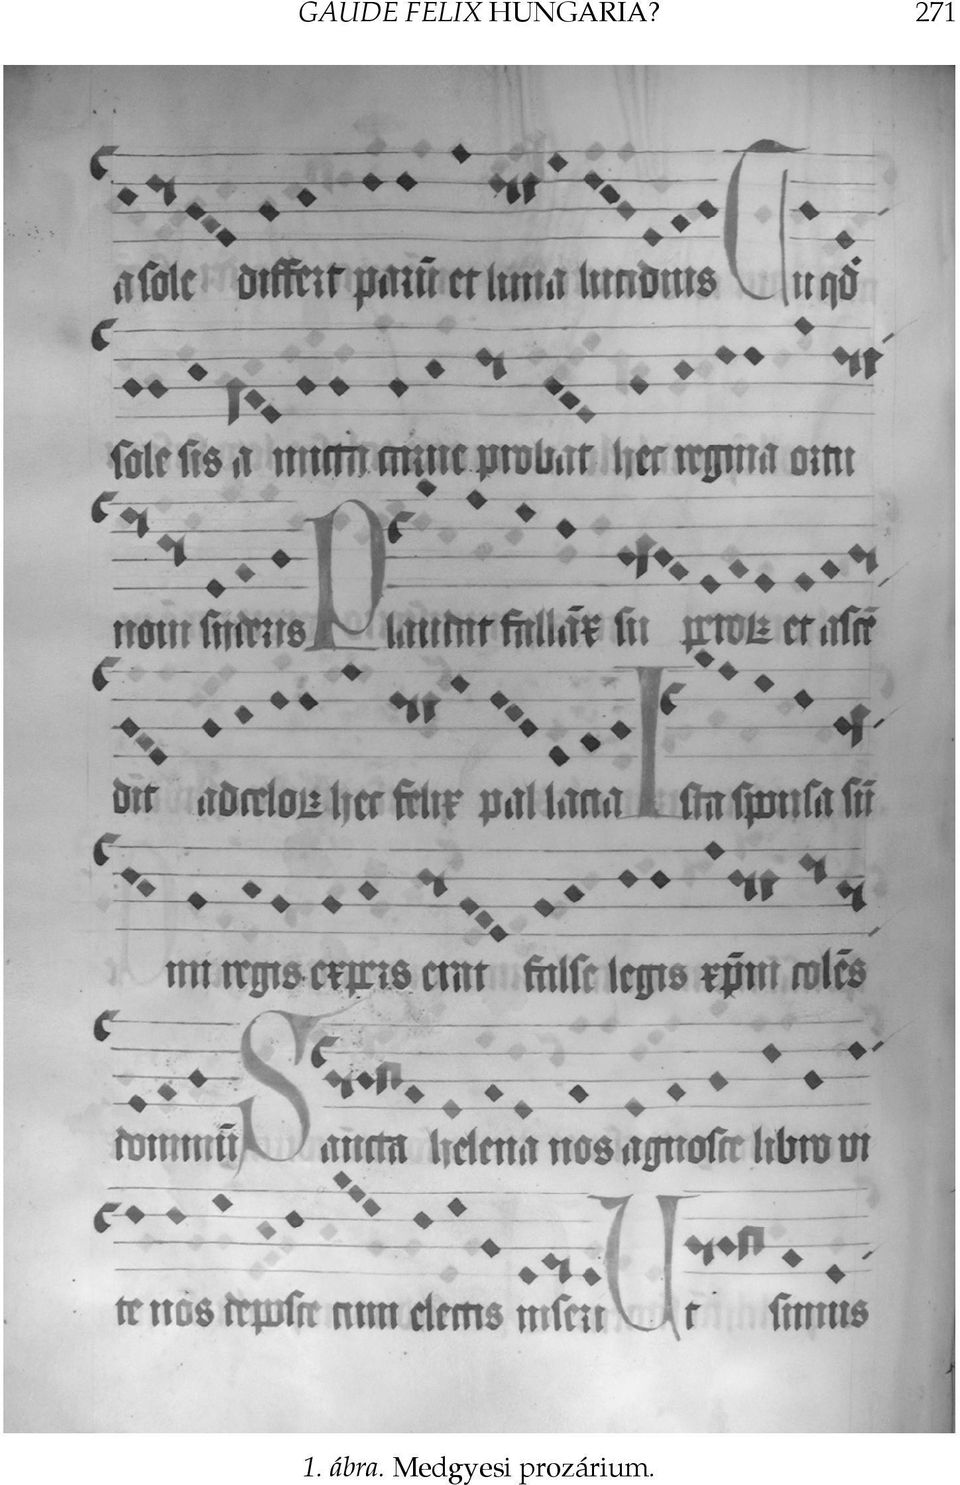 GAUDE FELIX HUNGARIA? 271
a sole differt parū et luna lucidius Tu qđ
sole sis a micta carne probat hec regina ortu
nom sideris Plaudat fallāx su et ascē
dit ad celoꝝ hec felix pal lacia Ista sponsa sū
mi regis expers erat false legis xp̄m colēs
dominū Sancta helena nos agnosce libro vi
te nos deposce cum electis inseri Ut simus
1. ábra. Medgyesi prozárium.